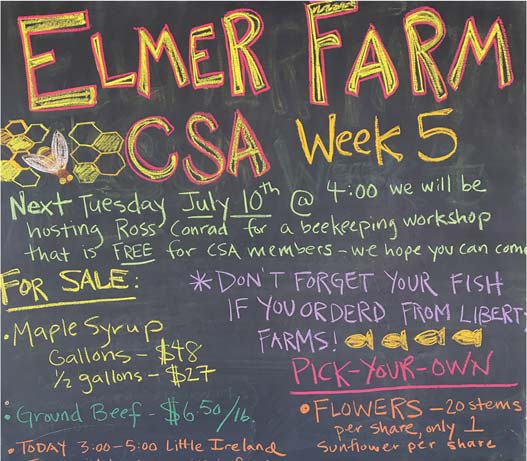 ELMER FARM
CSA Week 5
Next Tuesday July 10th @ 4:00 we will be
hosting Ross Conrad for a beekeeping workshop
that is FREE for CSA members - we hope you can come
FOR SALE:
• Maple Syrup
Gallons - $48
1/2 gallons - $27
• Ground Beef - $6.50/lb.
• TODAY 3:00-5:00 Little Ireland
* DON'T FORGET YOUR FISH
IF YOU ORDERD FROM LIBERT-
FARMS!
PICK-YOUR-OWN
• FLOWERS - 20 stems
per share, only 1
sunflower per share